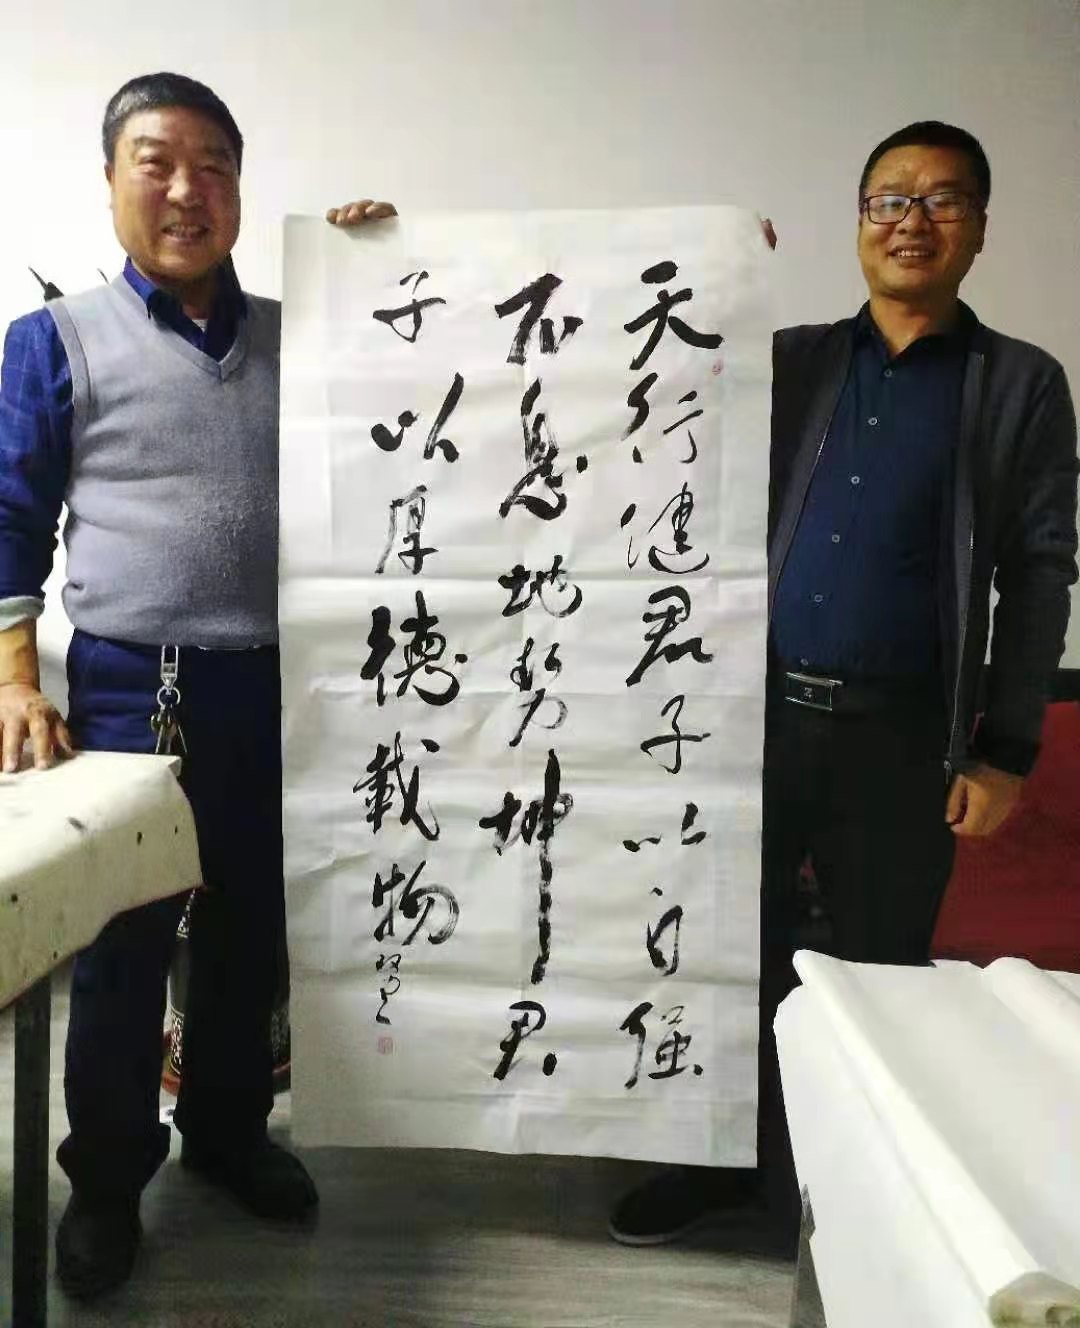 天行健君子以自强
不息地势坤君
子以厚德载物